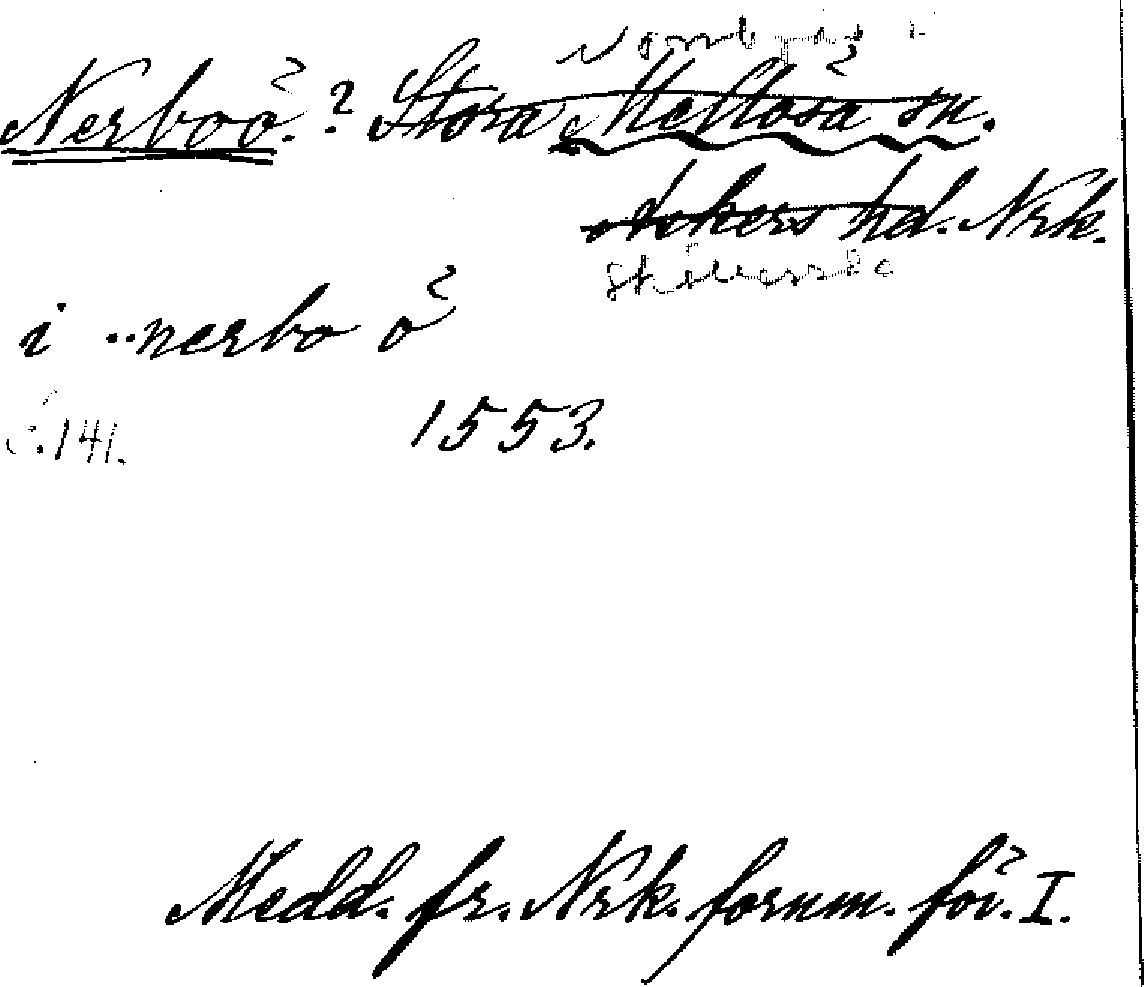 Nerboö.? Stora Mellösa sn.
Askers hd. Nrk.
i ..nerbo ö
s. 141. 1553.
Medd. fr. Nrk. fornm. för. I.